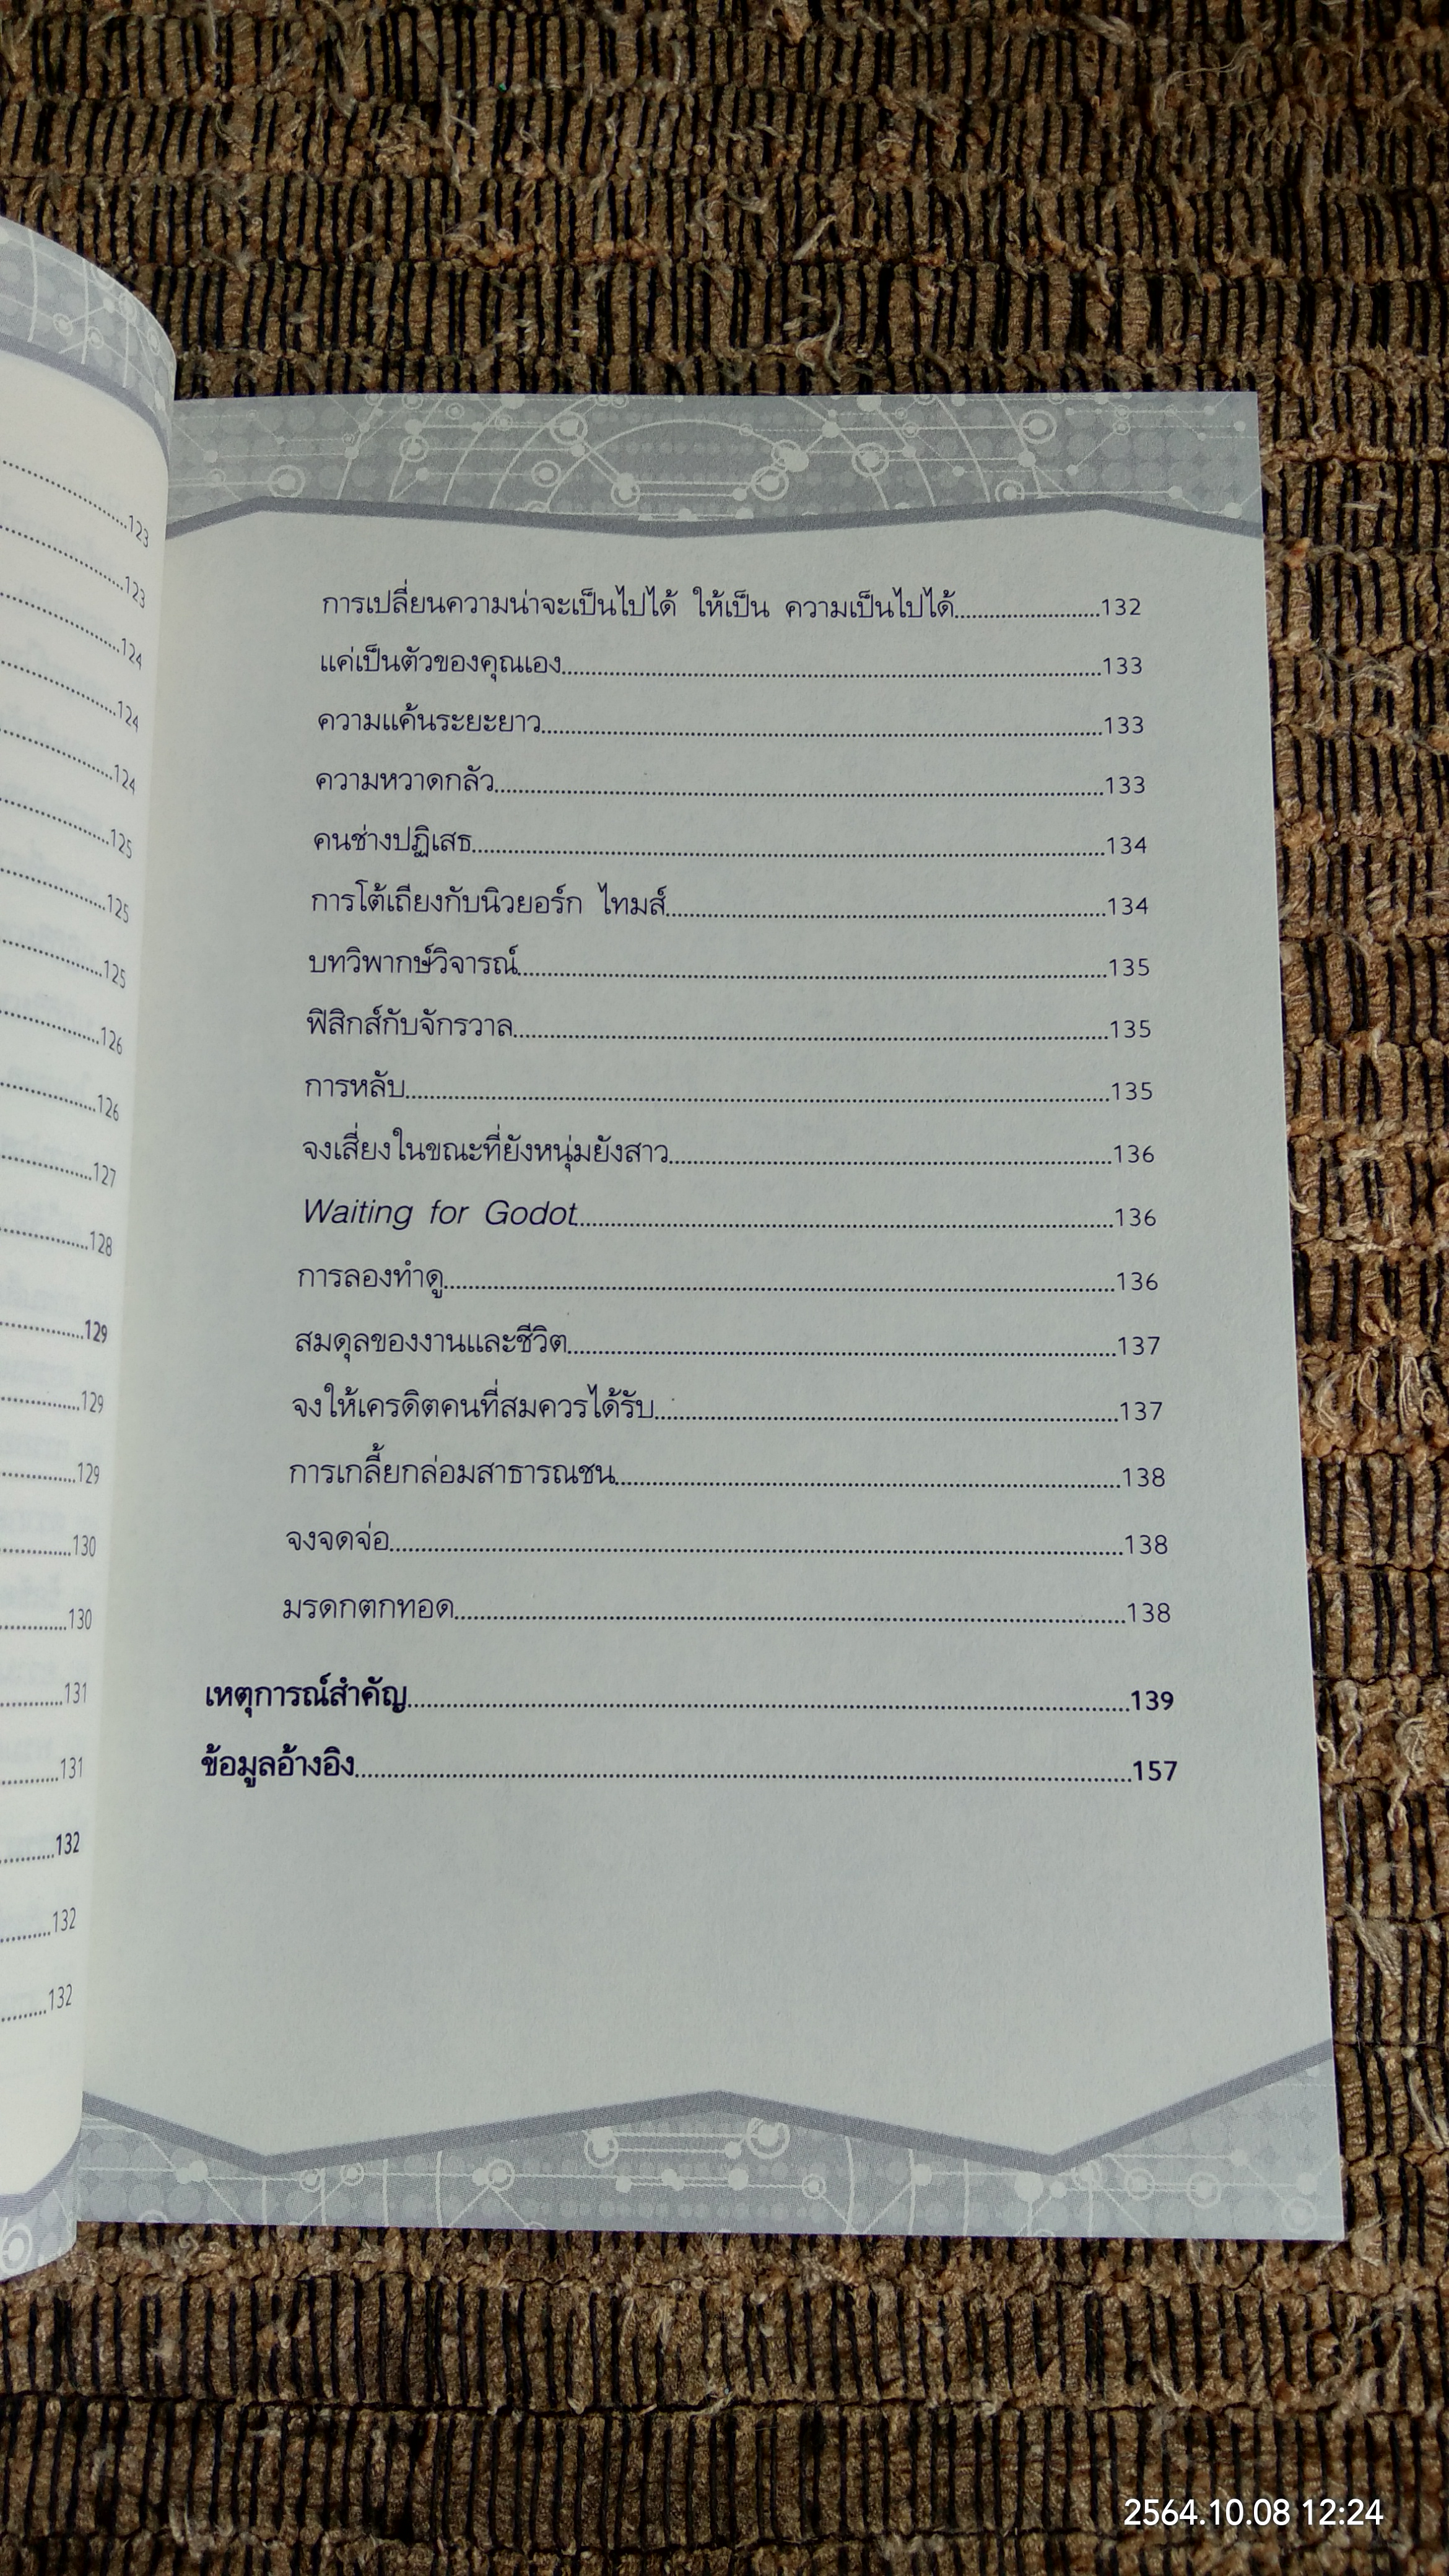 ..........123
..........123
..........124
..........124
..........124
..........125
..........125
..........125
..........126
..........126
..........127
..........128
..........129
..........129
..........129
..........130
..........130
..........131
..........131
..........132
..........132
..........132
การเปลี่ยนความน่าจะเป็นไปได้ ให้เป็น ความเป็นไปได้..........132
แค่เป็นตัวของคุณเอง..........133
ความแค้นระยะยาว..........133
ความหวาดกลัว..........133
คนช่างปฏิเสธ..........134
การโต้เถียงกับนิวยอร์ก ไทมส์..........134
บทวิพากษ์วิจารณ์..........135
ฟิสิกส์กับจักรวาล..........135
การหลับ..........135
จงเสี่ยงในขณะที่ยังหนุ่มยังสาว..........136
Waiting for Godot..........136
การลองทำดู..........136
สมดุลของงานและชีวิต..........137
จงให้เครดิตคนที่สมควรได้รับ..........137
การเกลี้ยกล่อมสาธารณชน..........138
จงจดจ่อ..........138
มรดกตกทอด..........138
เหตุการณ์สำคัญ..........139
ข้อมูลอ้างอิง..........157
2564.10.08 12:24